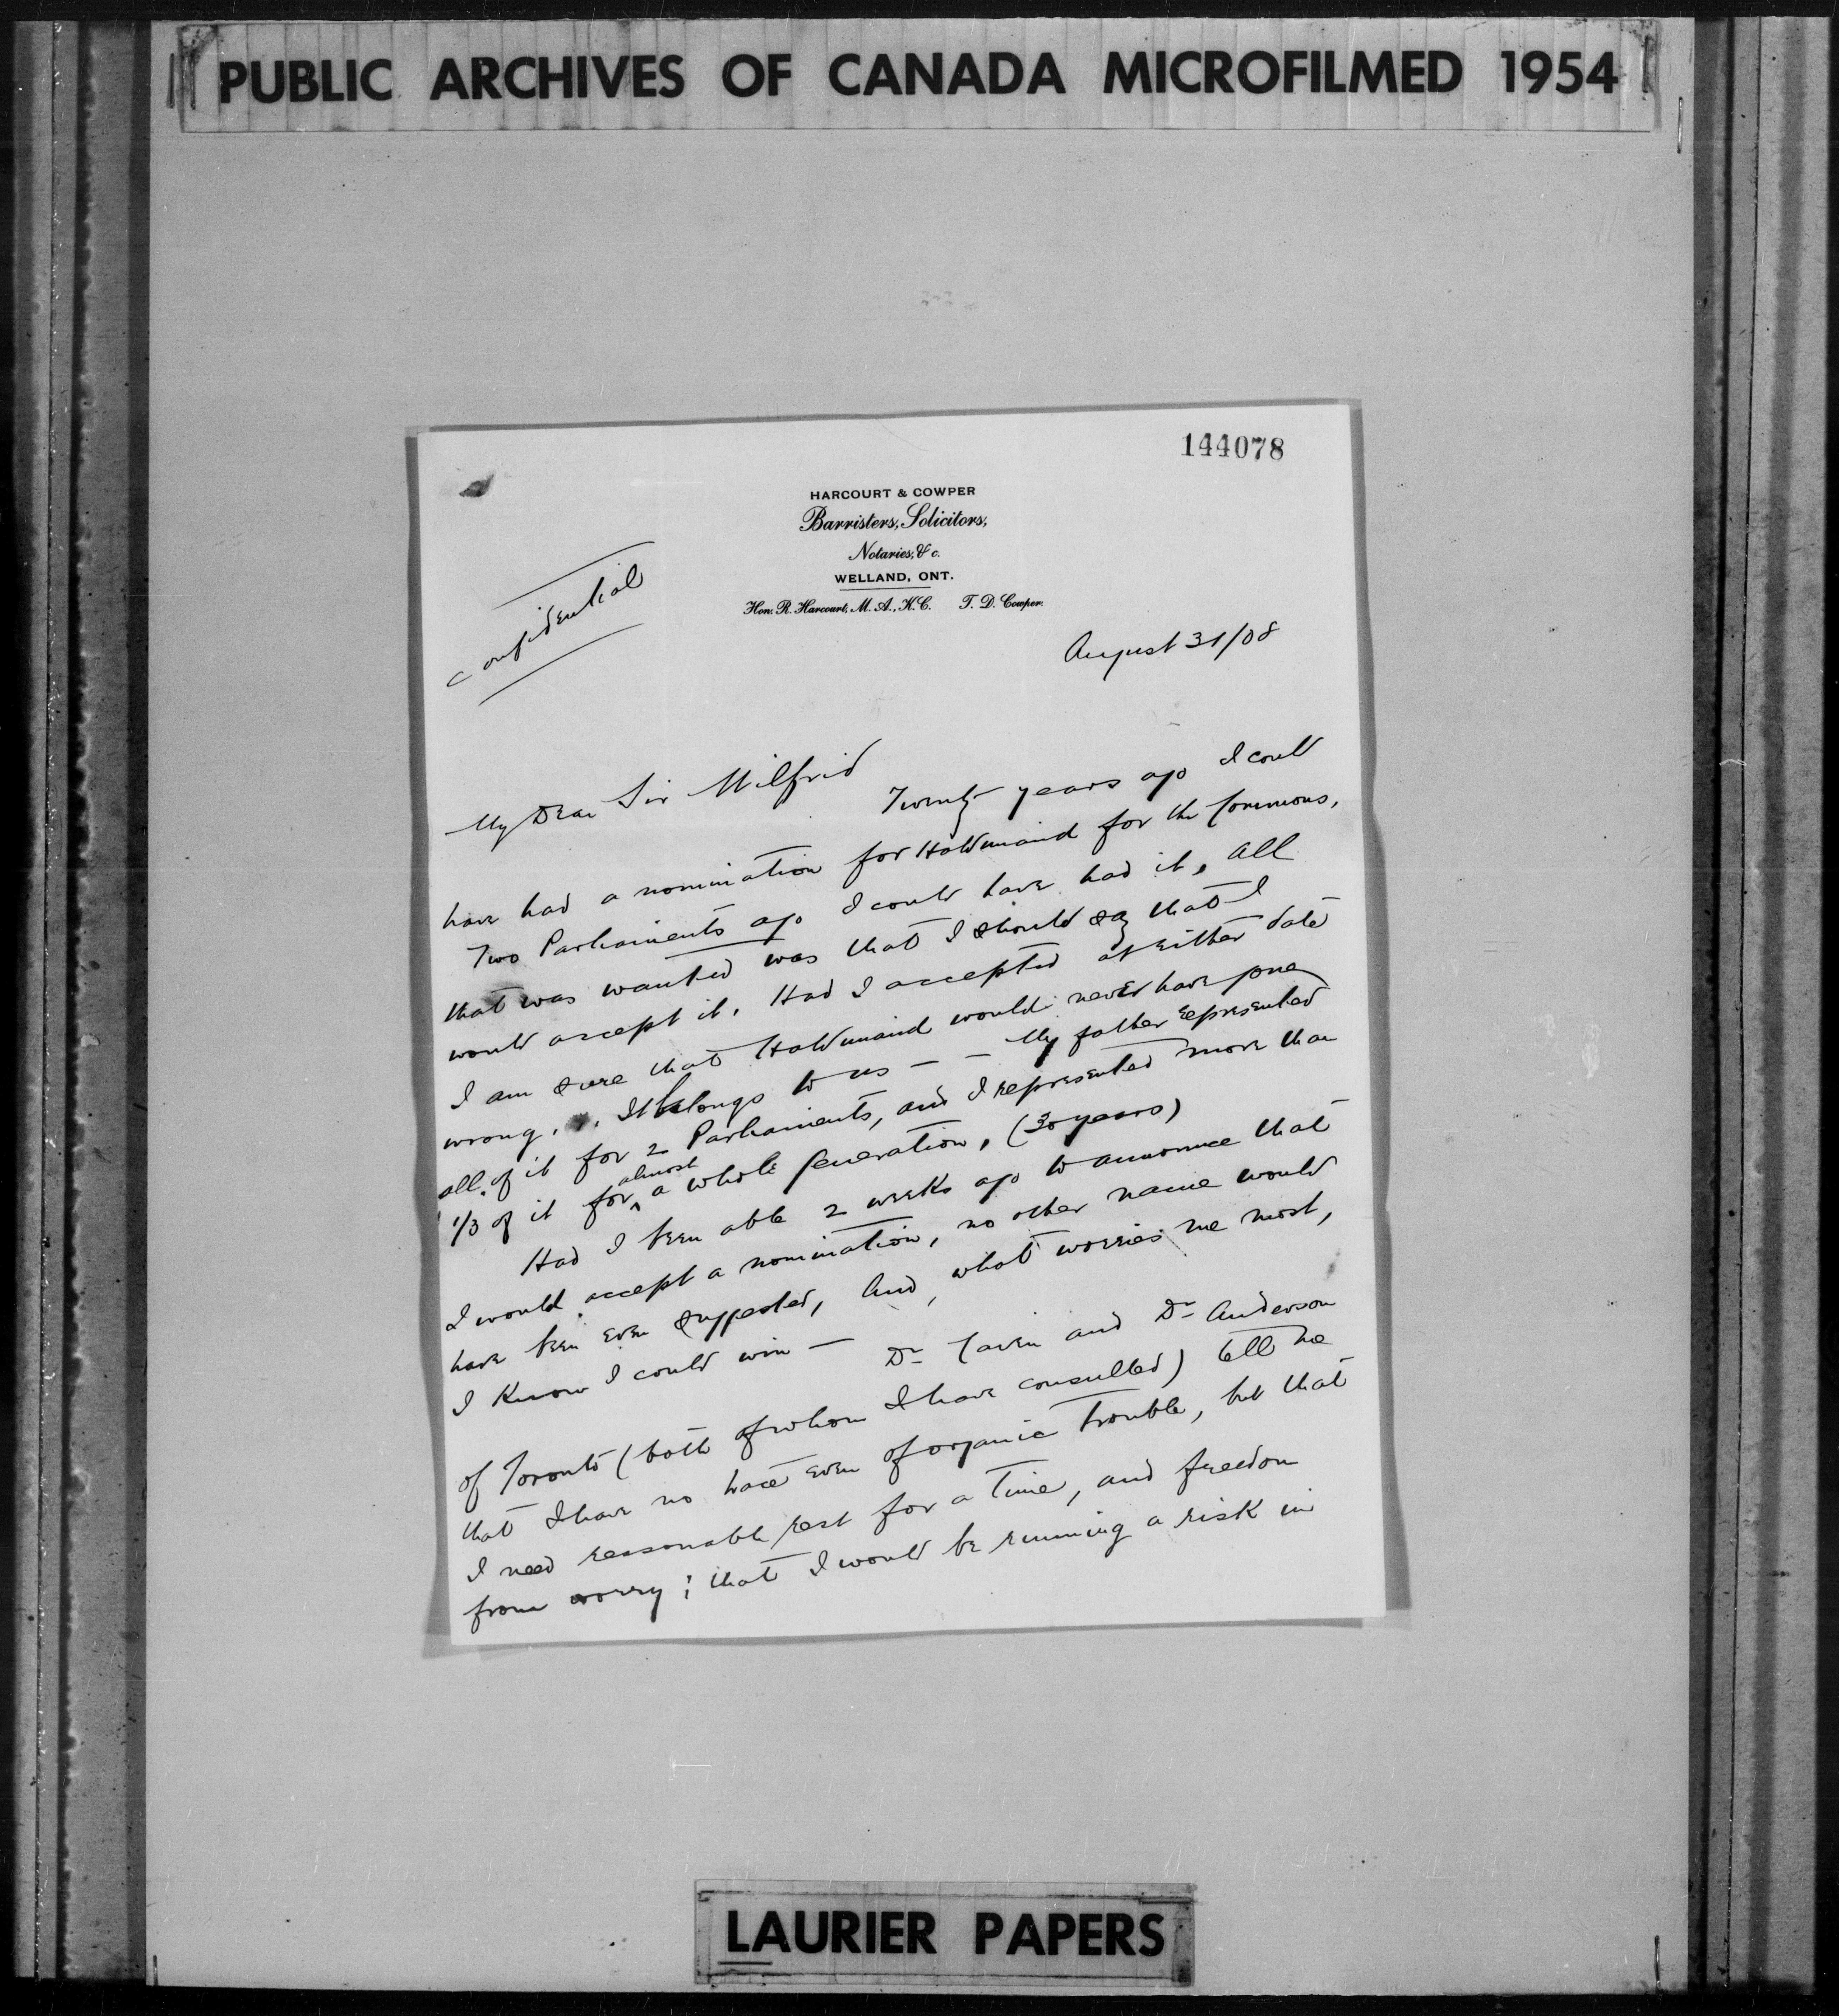 PUBLIC ARCHIVES OF CANADA MICROFILMED 1954
144078
HARCOURT & COWPER
Barristers, Solicitors,
Notaries, & c.
WELLAND, ONT.
Hon. R. Harcourt, M. A., K. C. T. D. Cowper.
Confidential
August 31/08
My Dear Sir Wilfrid
Twenty years ago I could
have had a nomination for Haldimand for the Commons,
Two Parliaments ago I could have had it, all
that was wanted was that I should say that I
would accept it. Had I accepted at either date
I am sure that Haldimand would never have gone
wrong. It belongs to us — — My father represented
all of it for 2 Parliaments, and I represented more than
1/3 of it for almost a whole generation, (30 years)
Had I been able 2 weeks ago to announce that
I would accept a nomination, no other name would
have been even suggested, and, what worries me most,
I know I could win — Dr and Dr Anderson
of Toronto (both of whom I have consulted) tell me
that I have no trace even of organic trouble, but that
I need reasonable rest for a time, and freedom
from worry; that I would be running a risk in
LAURIER PAPERS